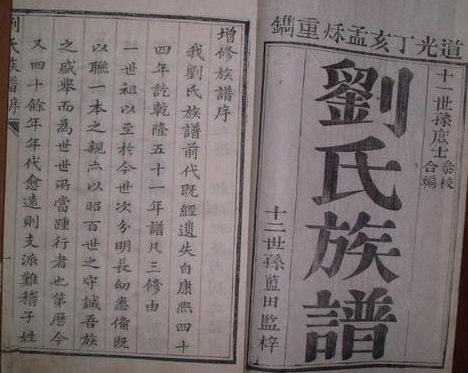 道光丁亥孟秌重鐫
十一世孫庠士
合編
劉氏族譜
十二世孫藍田監梓
增修族譜序
我劉氏族譜前代既經遺失自康熙四十
四年訖乾隆五十一年譜凡三修由
一世祖以至於今世次分明長幼悉備既
以聯一本之親亦以昭百世之守誠吾族
之盛舉而為世世所當踵行者也第歷今
又四十餘年年代愈遠則支派難稽子姓
劉氏族譜序